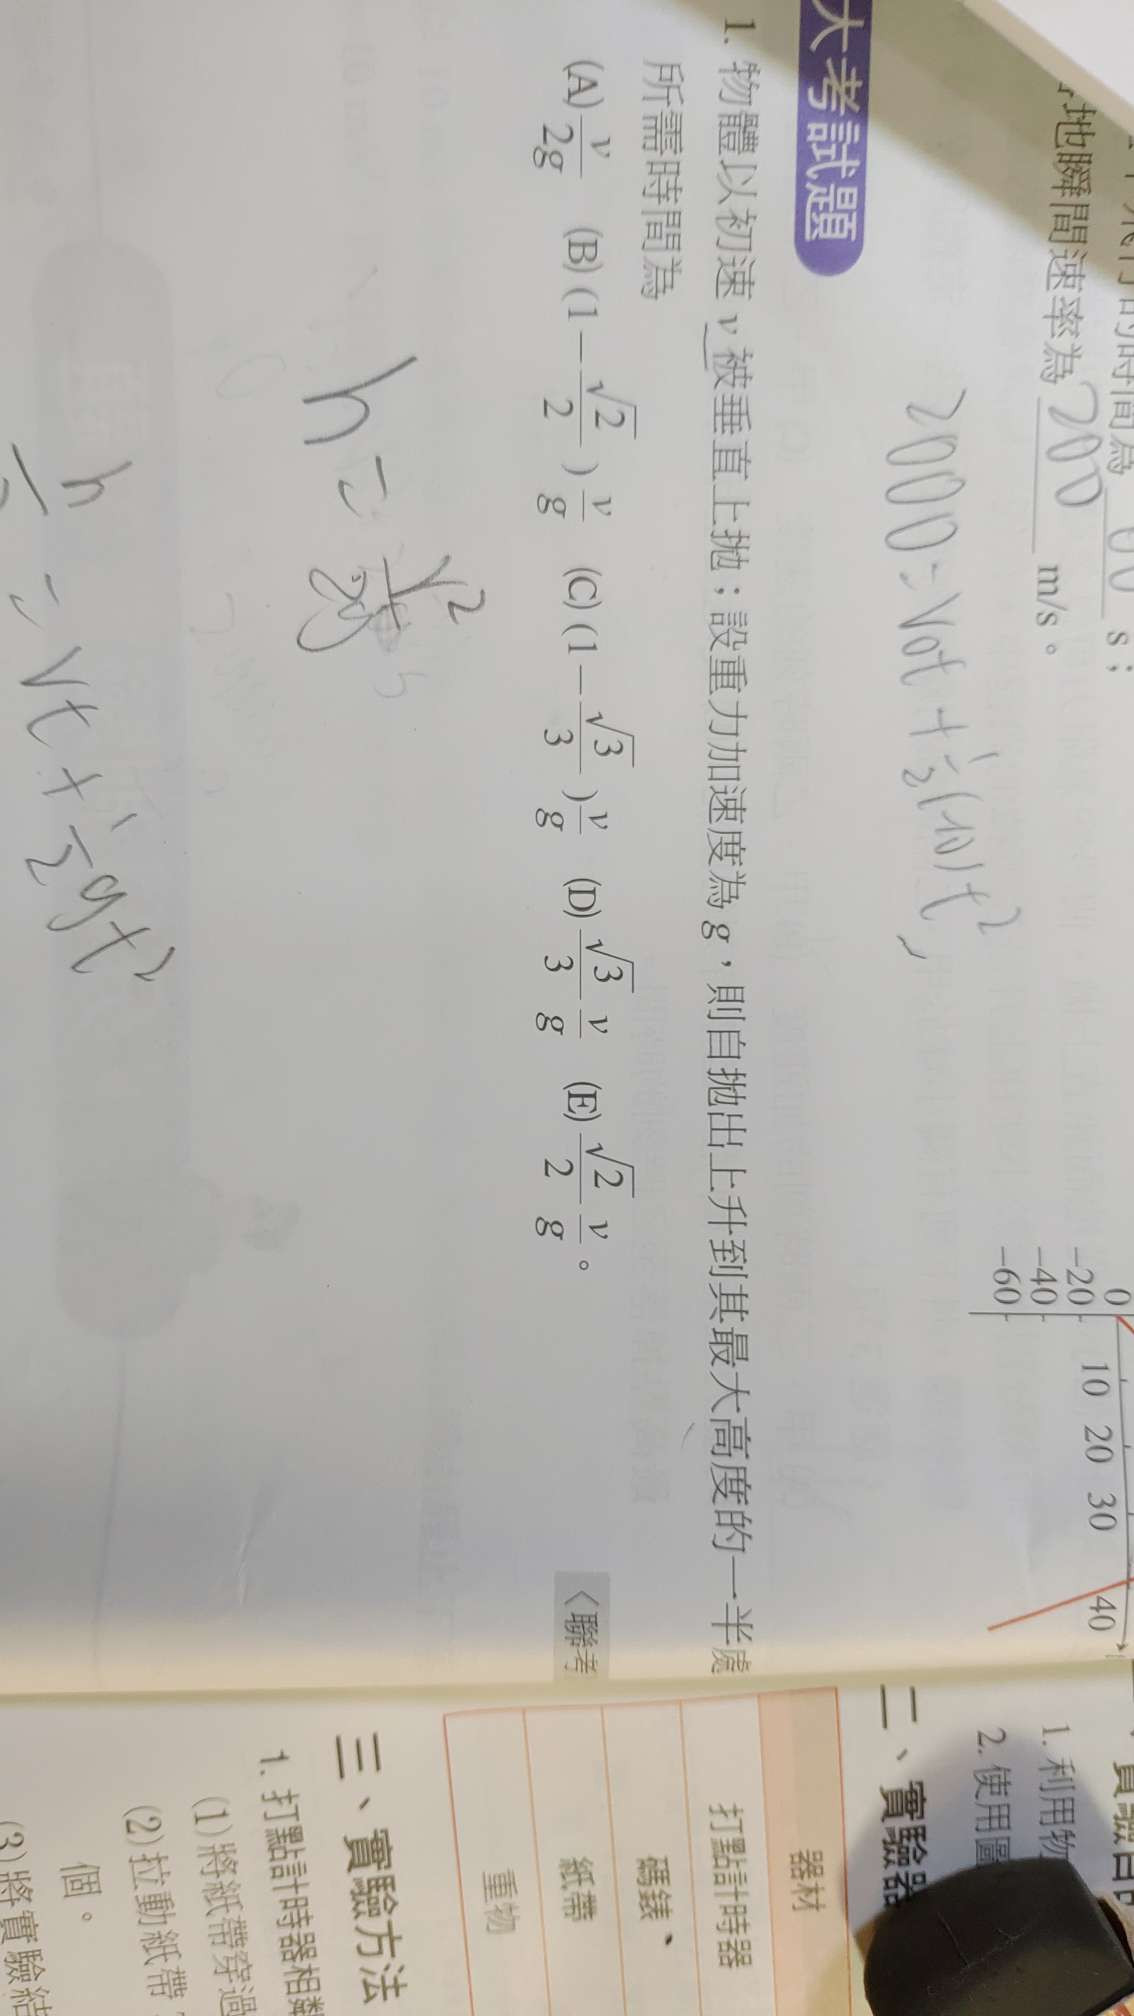 行的時間為 60 s；
地瞬間速率為 200 m/s。
2000=V0t+1/2(10)t²
0
-20
-40
-60
10 20 30 40
大考試題
1. 物體以初速 v 被垂直上拋；設重力加速度為 g，則自拋出上升到其最大高度的一半處
所需時間為
(A) v/2g (B) (1-√2/2) v/g (C) (1-√3/3) v/g (D) √3/3 v/g (E) √2/2 v/g。
〈聯考
h = v²/2g
h/2 = Vt+1/2gt²
1. 利用物
2. 使用圖
二、實驗器
器材
打點計時器
碼錶、
紙帶
重物
三、實驗方法
1. 打點計時器相
(1)將紙帶穿過
(2)拉動紙帶
個。
(3)將實驗結